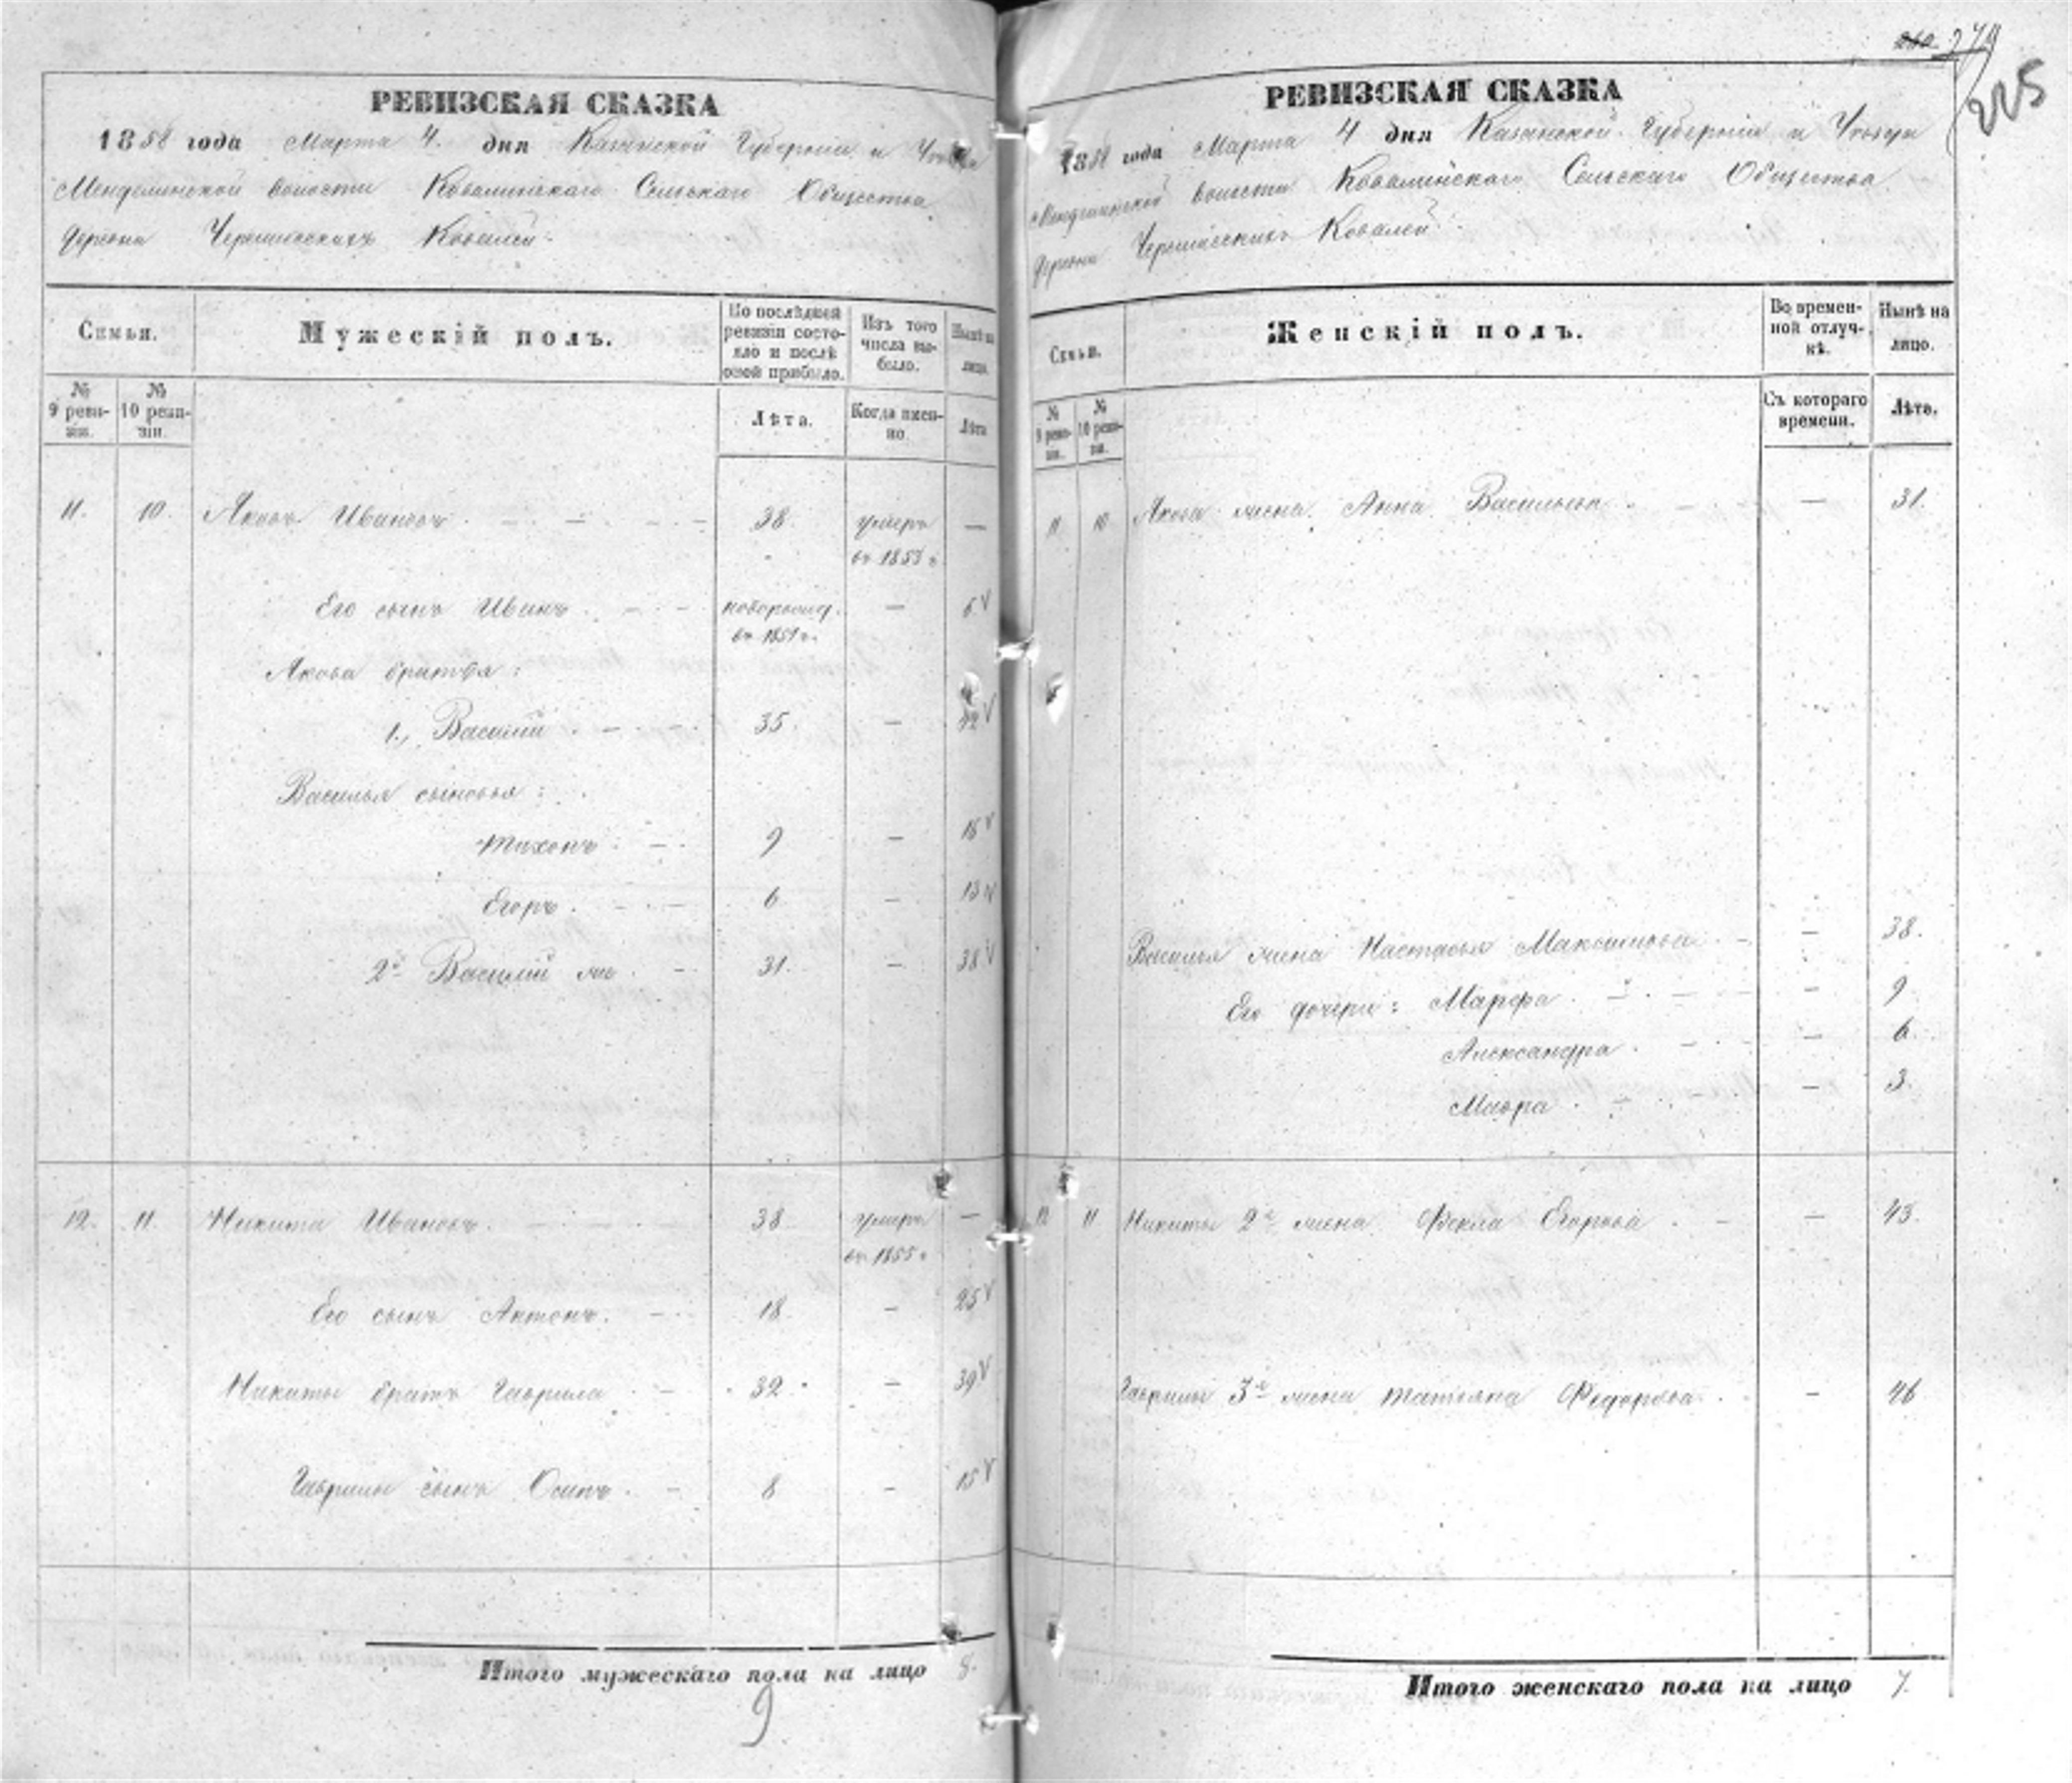 РЕВИЗСКАЯ СКАЗКА
1858 года Марта 4. дня Казанской Губернии и Уезда
волости Ковалинскаго Сельскаго Общества
деревни Ковалей
Семьи.
Мужескій полъ.
По послѣдней ревизіи состояло и послѣ оной прибыло.
Изъ того числа выбыло.
Нынѣ на лицо.
№ 9 ревизіи.
№ 10 ревизіи.
Лѣта.
Когда именно.
Лѣта
11. 10. Яковъ Ивановъ. 38. умеръ —
въ 1853 г.
Его сынъ Иванъ. новорожд. — 6 V
въ 1851 г.
Якова братья:
1., Василий 35. — 42 V
Василья сыновья:
Тихонъ 9 — 16 V
Егоръ. 6 — 13 V
2й Василий 31. — 38 V
12. 11. Никита Ивановъ. 38 умеръ —
въ 1855 г.
Его сынъ Антонъ. 18. — 25 V
Никиты братъ Гаврила 32 — 39 V
Гаврилы сынъ Осипъ. 8 — 15 V
Итого мужескаго пола на лицо 8.
9
274
225
РЕВИЗСКАЯ СКАЗКА
1858 года Марта 4 дня Казанской Губернии и Уезда
волости Ковалинскаго Сельскаго Общества
деревни Ковалей
Семьи.
Женскій полъ.
Во временной отлучкѣ.
Нынѣ на лицо.
№ 9 ревизіи.
№ 10 ревизіи.
Съ котораго времени.
Лѣта.
11 10 Якова жена Анна Васильева — 31.
Василья жена Настасья Максимова — 38.
Его дочери: Марфа — 9
Александра — 6.
Мавра — 3.
12 11 Никиты 2я жена Фекла Егорова — 43.
Гаврилы 3я жена Татьяна Федорова — 46
Итого женскаго пола на лицо 7.